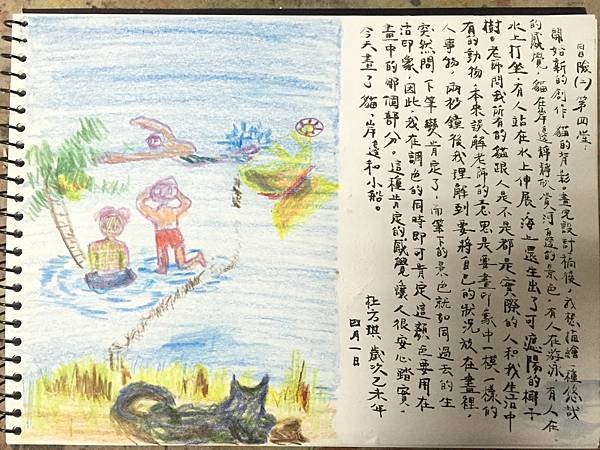 冒險(二)第四堂.
開始新的創作,貓的背影。畫完設計稿後,我想描繪一種悠哉
的感覺,貓在岸邊靜靜欣賞河邊的景色,有人在游泳,有人在
水上打坐,有人站在水上伸展,海上還生出了可遮陽的椰子
樹。老師問我所有的貓跟人是不是都是實際的人和我生活中
有的動物,本來誤解老師的意思是要畫印象中一模一樣的
人事物,兩秒鐘後我理解到要將自己的狀況放在畫裡,
突然間下筆變肯定了,而筆下的景色就如同過去的生
活印象,因此我在調色的同時即可肯定這顏色要用在
畫中的那個部分,這種肯定的感覺讓人很安心踏實。
今天畫了貓,岸邊和小船。
杜方琪 歲次乙未年
四月一日